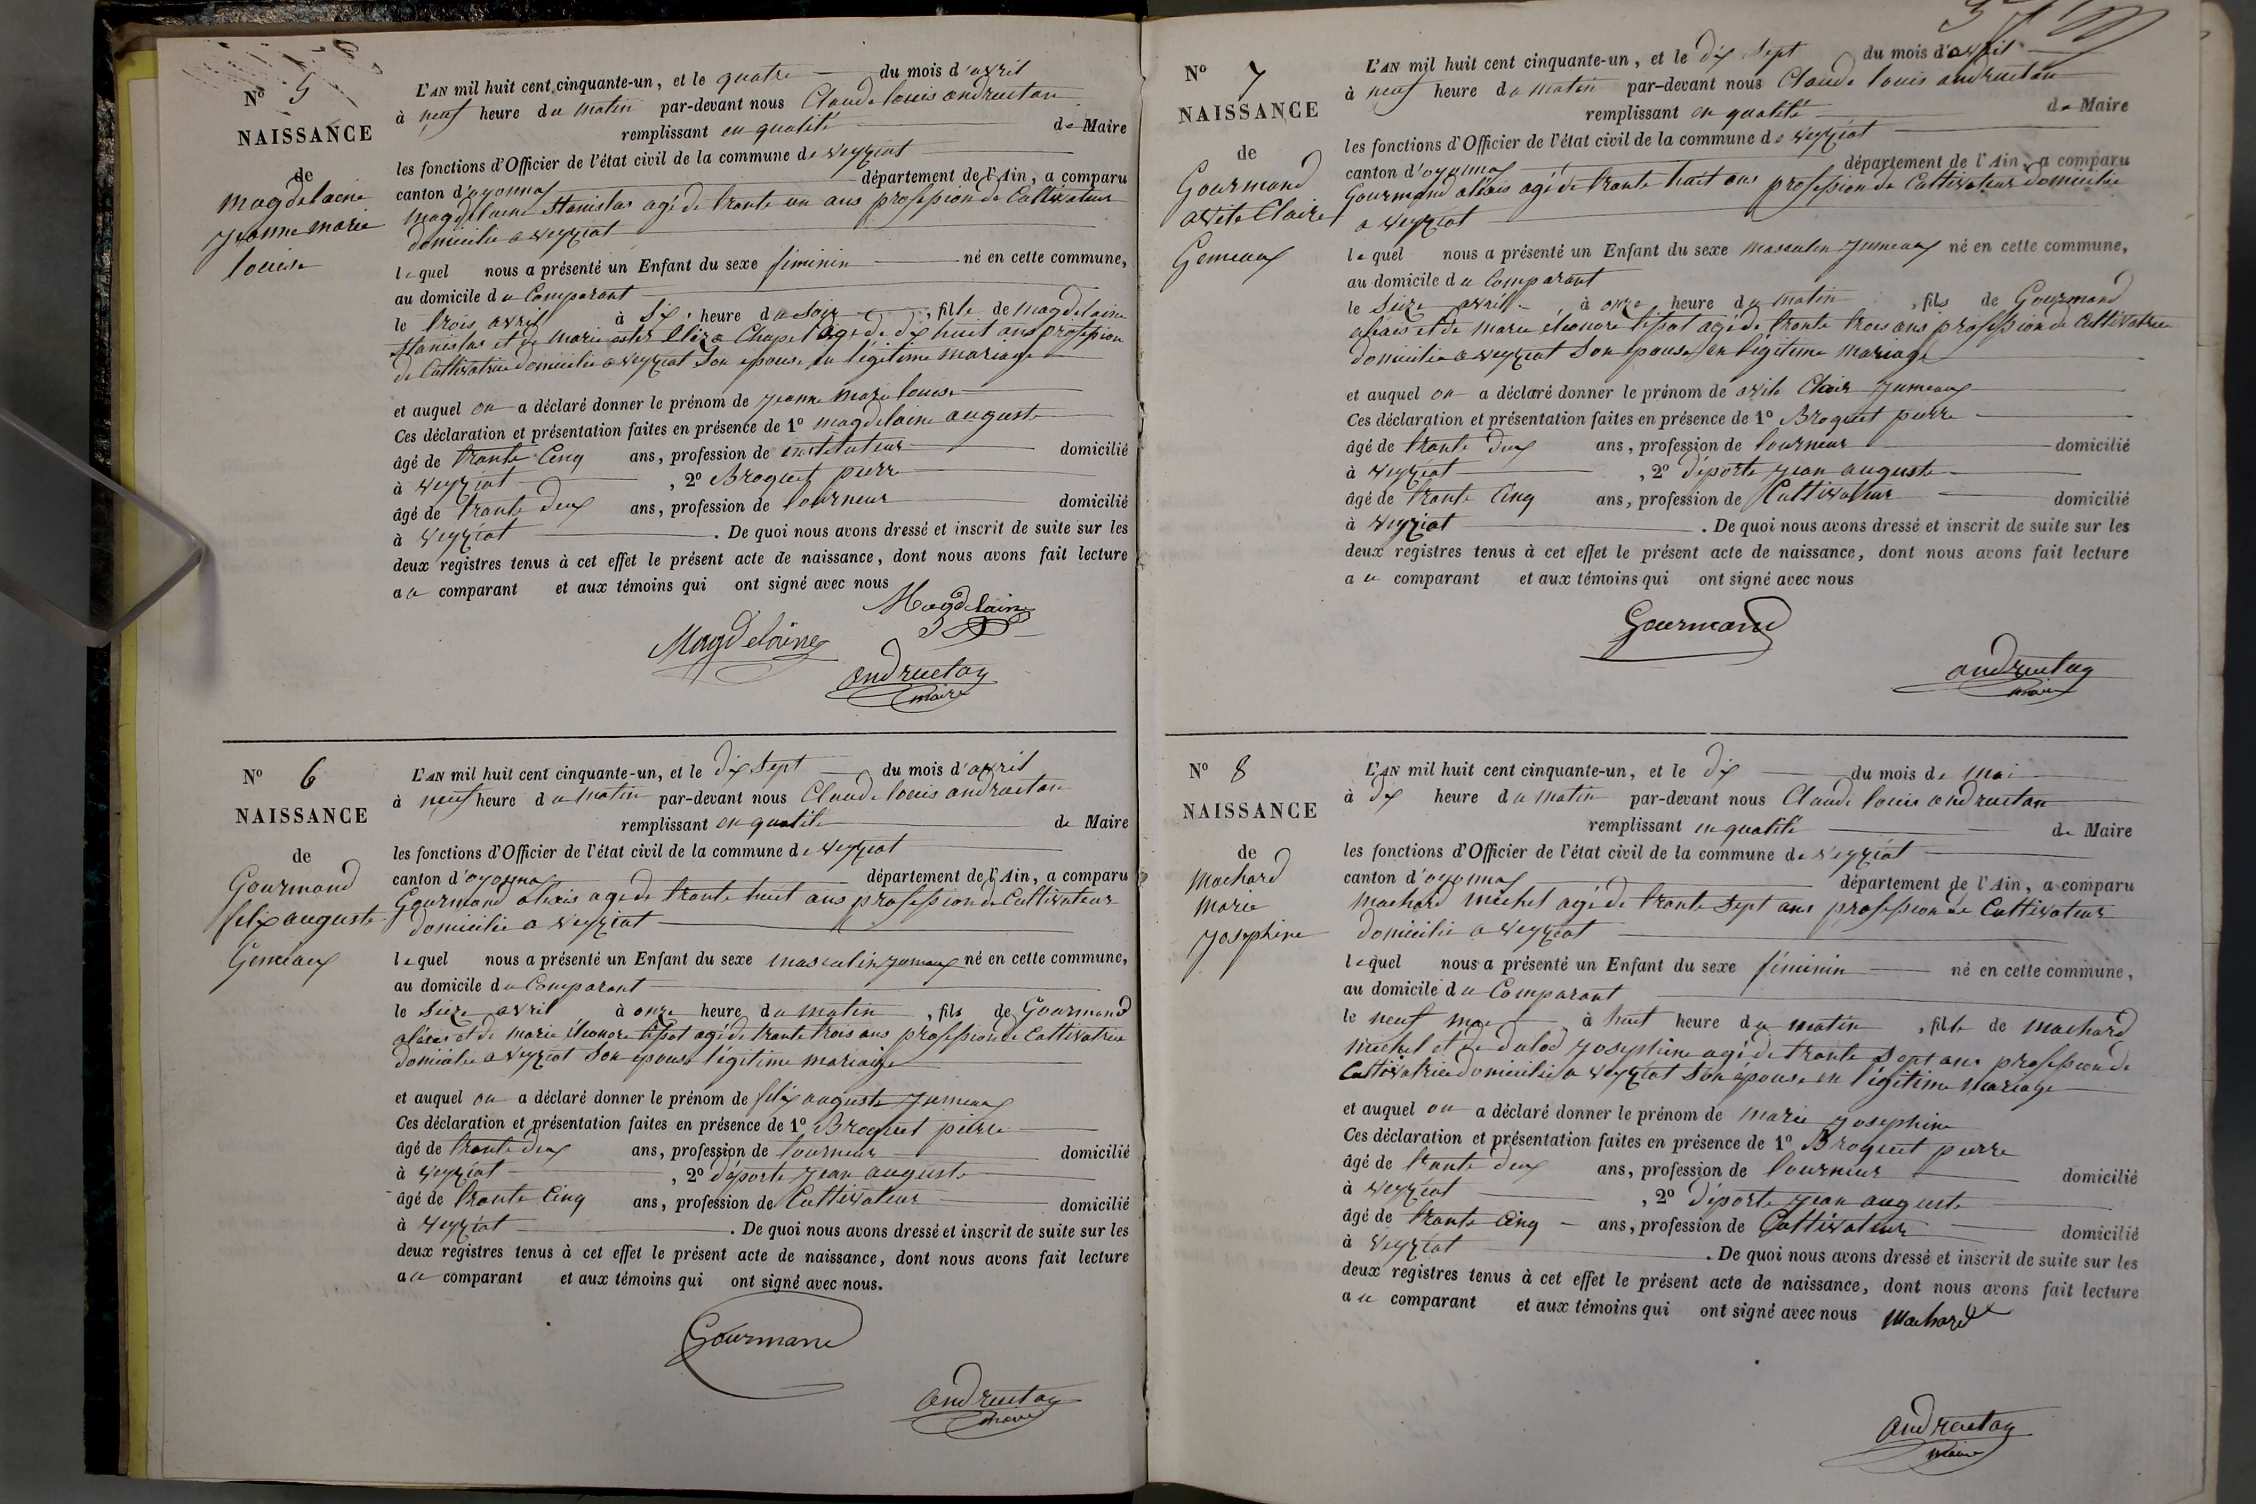 N° 5
NAISSANCE
de
Magdelaine
jeanne marie
louise
L'AN mil huit cent cinquante-un, et le quatre du mois d'avril
à neuf heure du matin par-devant nous Claude louis andruetan
remplissant en qualité de Maire
les fonctions d'Officier de l'état civil de la commune de veyziat
canton d'oyonnax département de l'Ain, a comparu
magdelaine Stanislas agé de trente un ans profession de Cultivateur
domicilié a veyziat
lequel nous a présenté un Enfant du sexe féminin né en cette commune,
au domicile du Comparant
le trois avril à six heure du soir, fille de magdelaine
Stanislas et de Marie ester Chapel agé de dix huit ans profession
de Cultivatrice domiciliée a veyziat son epouse en légitime mariage
et auquel on a déclaré donner le prénom de jeanne marie louise
Ces déclaration et présentation faites en présence de 1° magdelaine auguste
âgé de trente Cinq ans, profession de instituteur domicilié
à veyziat, 2° Broquet pierre
âgé de trente deux ans, profession de tourneur domicilié
à veyziat. De quoi nous avons dressé et inscrit de suite sur les
deux registres tenus à cet effet le présent acte de naissance, dont nous avons fait lecture
au comparant et aux témoins qui ont signé avec nous
Magdelaine
Magdelaine
andruetan
maire
N° 6
NAISSANCE
de
Gourmand
felix auguste
Gemeaux
L'AN mil huit cent cinquante-un, et le dix sept du mois d'avril
à neuf heure du matin par-devant nous Claude louis andruetan
remplissant en qualité de Maire
les fonctions d'Officier de l'état civil de la commune de veyziat
canton d'oyonnax département de l'Ain, a comparu
Gourmand alexis agé de trente huit ans profession de Cultivateur
domicilié a veyziat
lequel nous a présenté un Enfant du sexe masculin jumeaux né en cette commune,
au domicile du Comparant
le seize avril à onze heure du matin, fils de Gourmand
aléxis et de marie éléonore tissot agé de trente trois ans profession de Cultivatrice
domiciliée a veyziat son épouse légitime mariage
et auquel on a déclaré donner le prénom de felix auguste jumeaux
Ces déclaration et présentation faites en présence de 1° Broquet pierre
âgé de trente deux ans, profession de tourneur domicilié
à veyziat, 2° déporte jean auguste
âgé de trente Cinq ans, profession de Cultivateur domicilié
à veyziat. De quoi nous avons dressé et inscrit de suite sur les
deux registres tenus à cet effet le présent acte de naissance, dont nous avons fait lecture
au comparant et aux témoins qui ont signé avec nous.
Gourmand
andruetan
maire
N° 7
NAISSANCE
de
Gourmand
avite Claire
Gemeaux
L'AN mil huit cent cinquante-un, et le dix sept du mois d'avril
à neuf heure du matin par-devant nous Claude louis andruetan
remplissant en qualité de Maire
les fonctions d'Officier de l'état civil de la commune de veyziat
canton d'oyonnax département de l'Ain, a comparu
Gourmand aléxis agé de trente huit ans profession de Cultivateur domicilié
a veyziat
lequel nous a présenté un Enfant du sexe masculin jumeaux né en cette commune,
au domicile du Comparant
le seize avril à onze heure du matin, fils de Gourmand
aléxis et de marie éléonore tissot agé de trente trois ans profession de Cultivatrice
domiciliée a veyziat son épouse en légitime mariage
et auquel on a déclaré donner le prénom de avite Clair jumeaux
Ces déclaration et présentation faites en présence de 1° Broquet pierre
âgé de trente deux ans, profession de tourneur domicilié
à veyziat, 2° déporte jean auguste
âgé de trente Cinq ans, profession de Cultivateur domicilié
à veyziat. De quoi nous avons dressé et inscrit de suite sur les
deux registres tenus à cet effet le présent acte de naissance, dont nous avons fait lecture
au comparant et aux témoins qui ont signé avec nous
Gourmand
andruetan
maire
N° 8
NAISSANCE
de
Machard
Marie
josephine
L'AN mil huit cent cinquante-un, et le dix du mois de mai
à dix heure du matin par-devant nous Claude louis andruetan
remplissant en qualité de Maire
les fonctions d'Officier de l'état civil de la commune de veyziat
canton d'oyonnax département de l'Ain, a comparu
machard michel agé de trente sept ans profession de Cultivateur
domicilié a veyziat
lequel nous a présenté un Enfant du sexe féminin né en cette commune,
au domicile du Comparant
le neuf mai à huit heure du matin, fille de machard
michel et de dalod josephine agé de trente sept ans profession de
Cultivatrice domiciliée a veyziat son épouse en légitime mariage
et auquel on a déclaré donner le prénom de marie josephine
Ces déclaration et présentation faites en présence de 1° Broquet pierre
âgé de trente deux ans, profession de tourneur domicilié
à veyziat, 2° déporte jean auguste
âgé de trente Cinq ans, profession de Cultivateur domicilié
à veyziat. De quoi nous avons dressé et inscrit de suite sur les
deux registres tenus à cet effet le présent acte de naissance, dont nous avons fait lecture
au comparant et aux témoins qui ont signé avec nous Machard
andruetan
maire